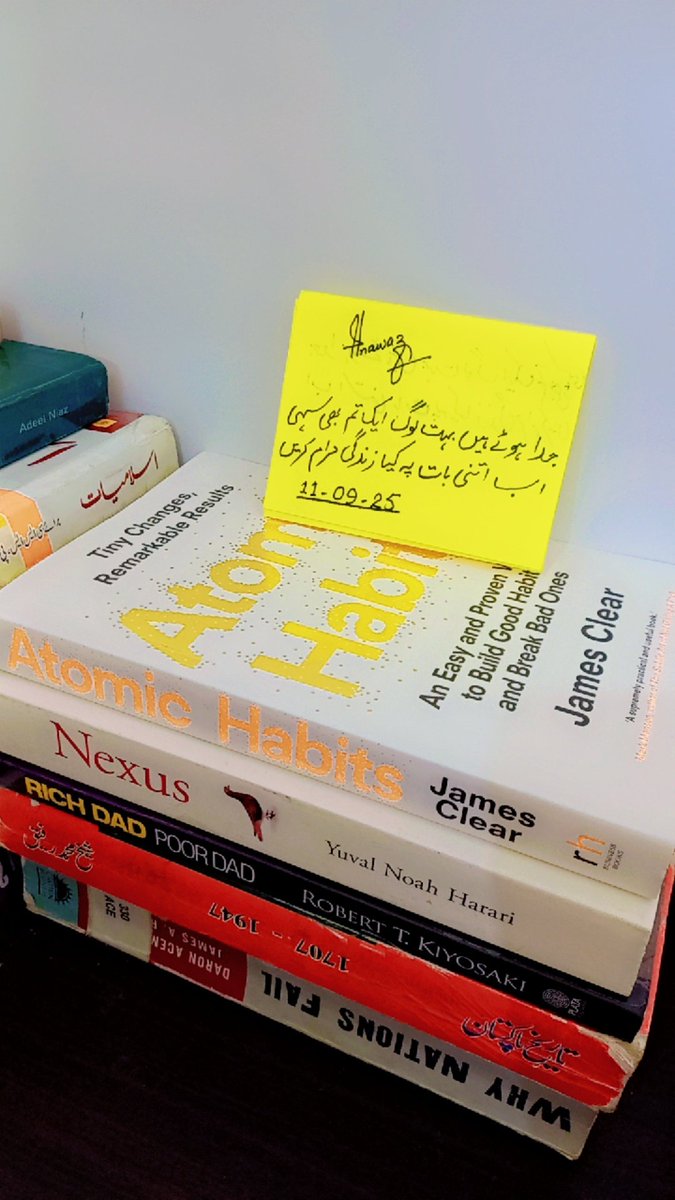 Hnawaz
جدا ہوئے ہیں بہت لوگ ایک تم بھی سہی
اب اتنی بات پہ کیا زندگی حرام کریں
11-09-25
Adeel Niaz
اسلامیات
Tiny Changes,
Remarkable Results
Atom
Habi
An Easy and Proven
to Build Good Habit
and Break Bad Ones
James Clear
'A supremely practical and useful book.'
Atomic Habits
James
Clear
rh
BUSINESS
BOOKS
Nexus
Yuval Noah Harari
RICH DAD POOR DAD
ROBERT T. KIYOSAKI
1707 - 1947
تاریخ پاکستان
330
ACE
DARON ACEM
JAMES A.
WHY NATIONS FAIL